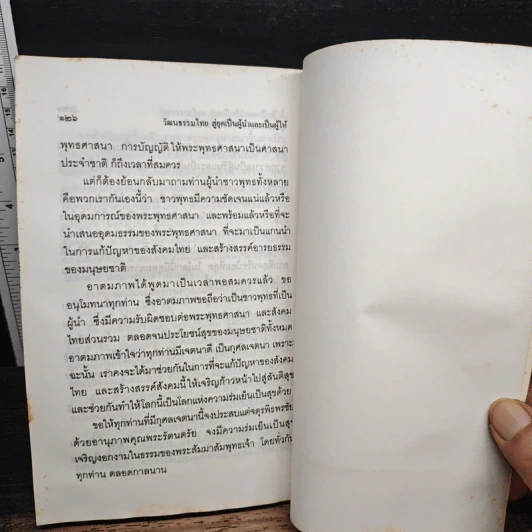 ๑๒๖
วัฒนธรรมไทย สู่ยุคเป็นผู้นำและเป็นผู้ให้
พุทธศาสนา การบัญญัติให้พระพุทธศาสนาเป็นศาสนา
ประจำชาติ ก็ถึงเวลาที่สมควร
แต่ก็ต้องย้อนกลับมาถามท่านผู้นำชาวพุทธทั้งหลาย
คือพวกเรากันเองนี้ว่า ชาวพุทธมีความชัดเจนแน่แล้วหรือ
ในอุดมการณ์ของพระพุทธศาสนา และพร้อมแล้วหรือที่จะ
นำเสนออุดมธรรมของพระพุทธศาสนา ที่จะมาเป็นแกนนำ
ในการแก้ปัญหาของสังคมไทย และสร้างสรรค์อารยธรรม
ของมนุษยชาติ
อาตมภาพได้พูดมาเป็นเวลาพอสมควรแล้ว ขอ
อนุโมทนาทุกท่าน ซึ่งอาตมภาพขอถือว่าเป็นชาวพุทธที่เป็น
ผู้นำ ซึ่งมีความรับผิดชอบต่อพระพุทธศาสนา และสังคม
ไทยส่วนรวม ตลอดจนประโยชน์สุขของมนุษยชาติทั้งหมด
อาตมภาพเข้าใจว่าทุกท่านมีเจตนาดี เป็นกุศลเจตนา เพราะ
ฉะนั้น เราคงจะได้มาช่วยกันในการที่จะแก้ปัญหาของสังคม
ไทย และสร้างสรรค์สังคมนี้ให้เจริญก้าวหน้าไปสู่สันติสุข
และช่วยกันทำให้โลกนี้เป็นโลกแห่งความร่มเย็นเป็นสุขด้วย
ขอให้ทุกท่านที่มีกุศลเจตนานี้จงประสบแต่จตุรพิธพรชัย
ด้วยอานุภาพคุณพระรัตนตรัย จงมีความร่มเย็นเป็นสุข
เจริญงอกงามในธรรมของพระสัมมาสัมพุทธเจ้า โดยทั่วกัน
ทุกท่าน ตลอดกาลนาน